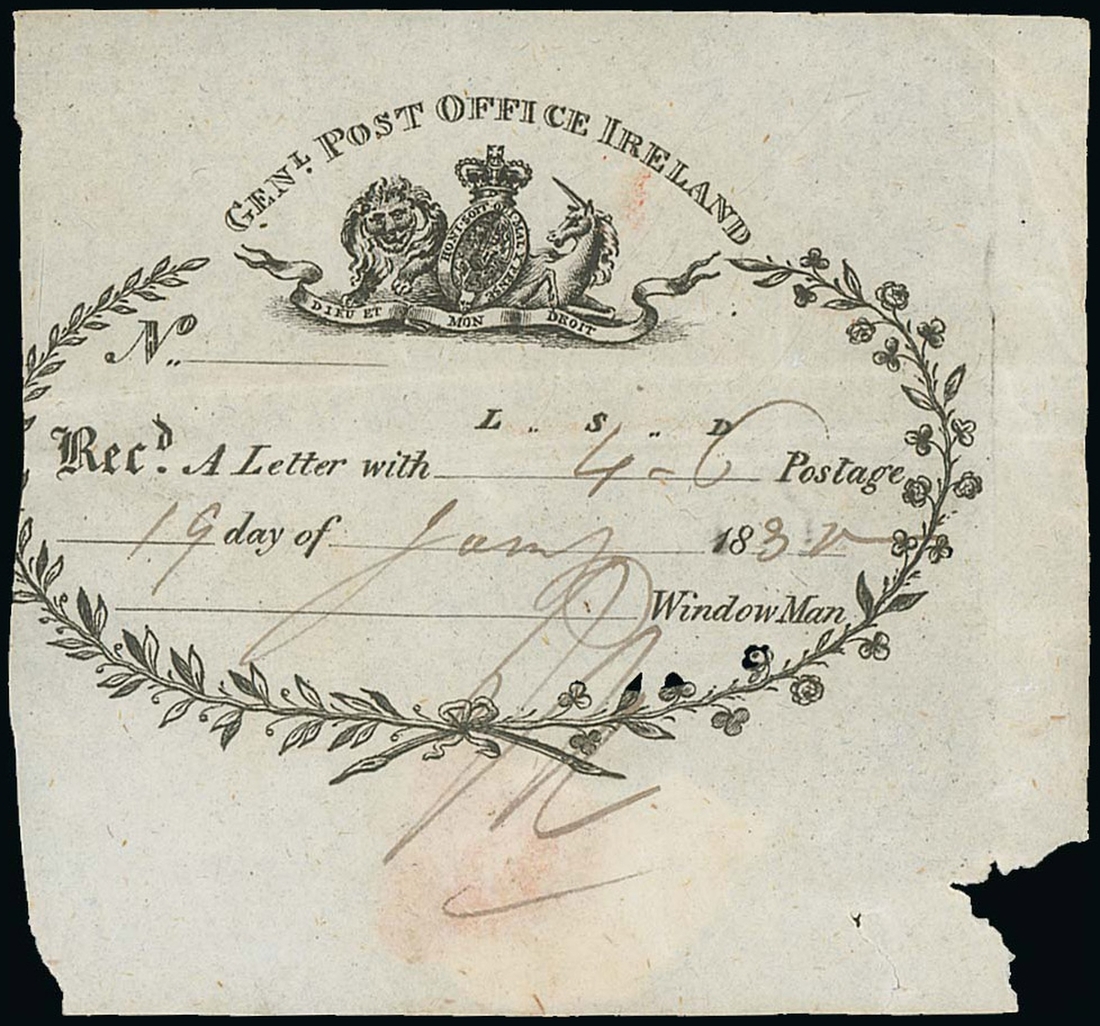 GENL. POST OFFICE IRELAND
HONI·SOIT QUI MAL Y PENS
DIEU ET MON DROIT
No.. 
L .. S .. D
Recd. A Letter with 4-6 Postage
19 day of Jany 1832
Window Man